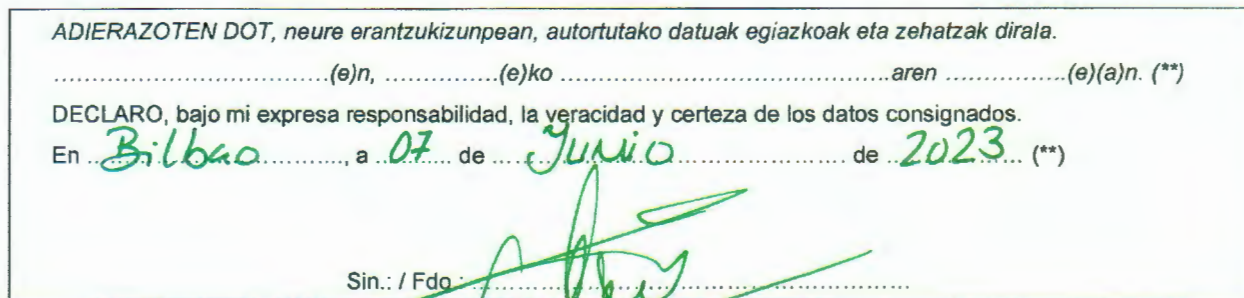 ADIERAZOTEN DOT, neure erantzukizunpean, autortutako datuak egiazkoak eta zehatzak dirala.
.................................(e)n, ..............(e)ko ........................................aren ...............(e)(a)n. (**)
DECLARO, bajo mi expresa responsabilidad, la veracidad y certeza de los datos consignados.
En Bilbao, a 07 de Junio de 2023 (**)
Sin.: / Fdo.: